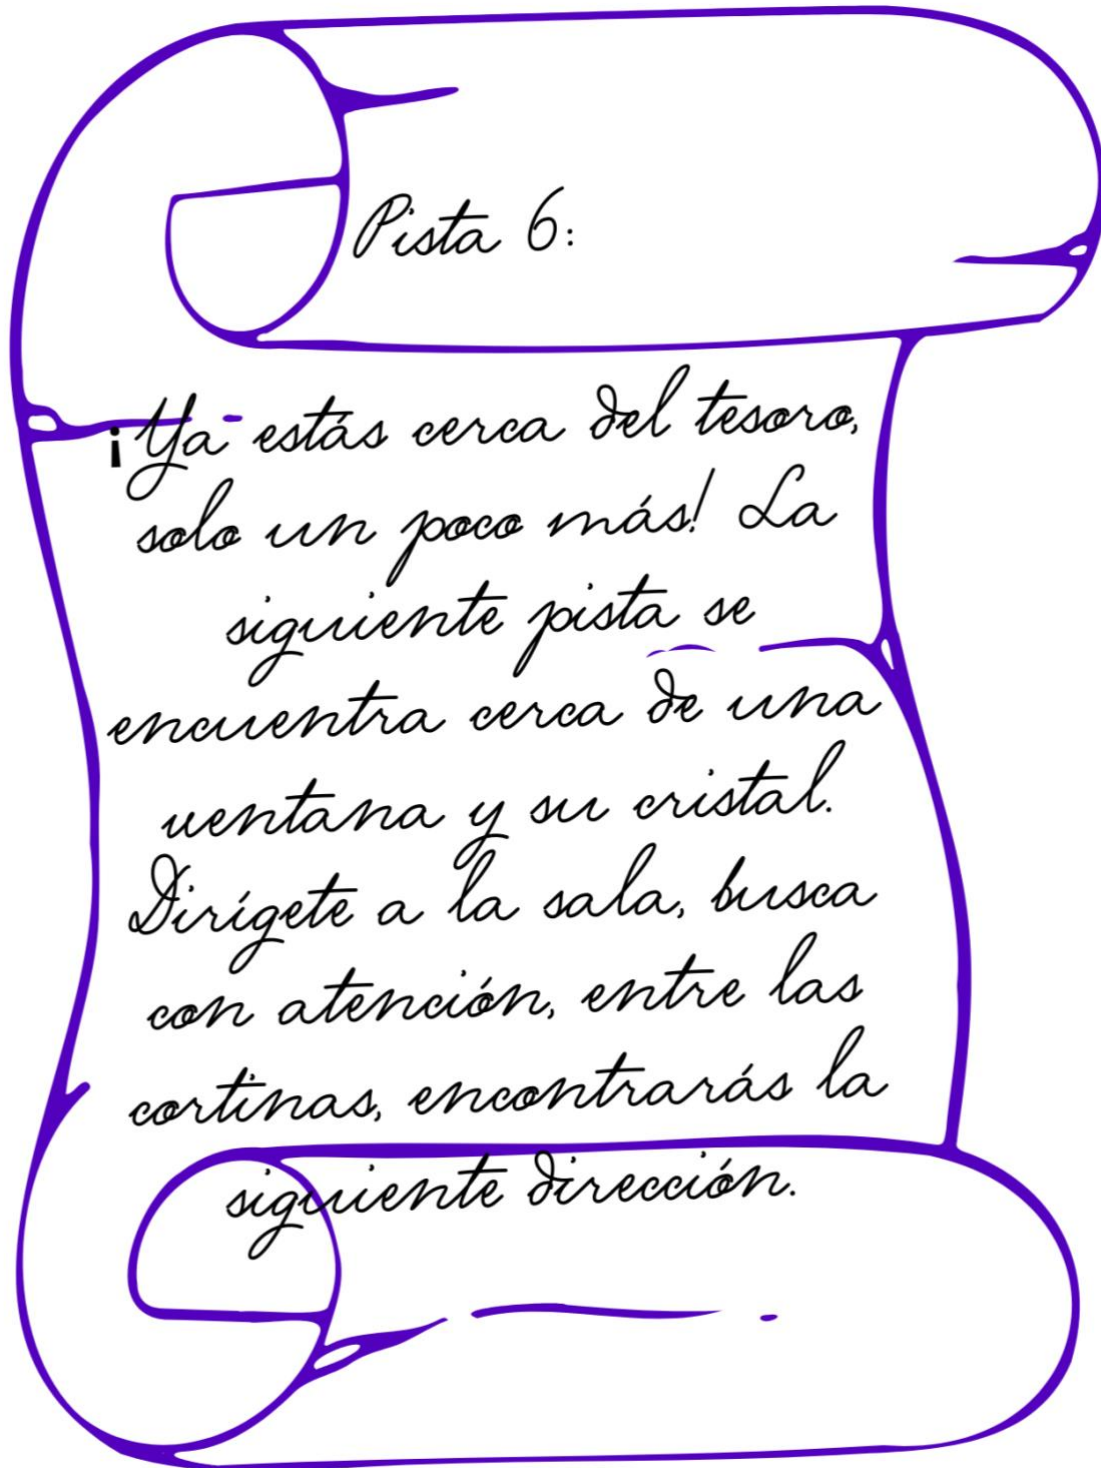 Pista 6:
¡Ya estás cerca del tesoro,
solo un poco más! La
siguiente pista se
encuentra cerca de una
ventana y su cristal.
Dirígete a la sala, busca
con atención, entre las
cortinas, encontrarás la
siguiente dirección.